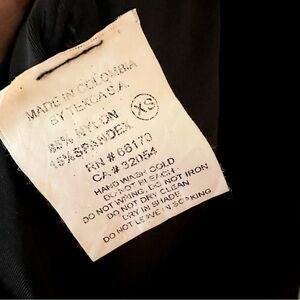 MADE IN COLOMBIA
BY TEXCA S.A.
85% NYLON
15% SPANDEX
XS
RN # 66170
CA # 32054
HAND WASH COLD
DO NOT BLEACH
DO NOT WRING, DO NOT IRON
DO NOT DRY CLEAN
DRY IN SHADE
DO NOT LEAVE IN SOAKING